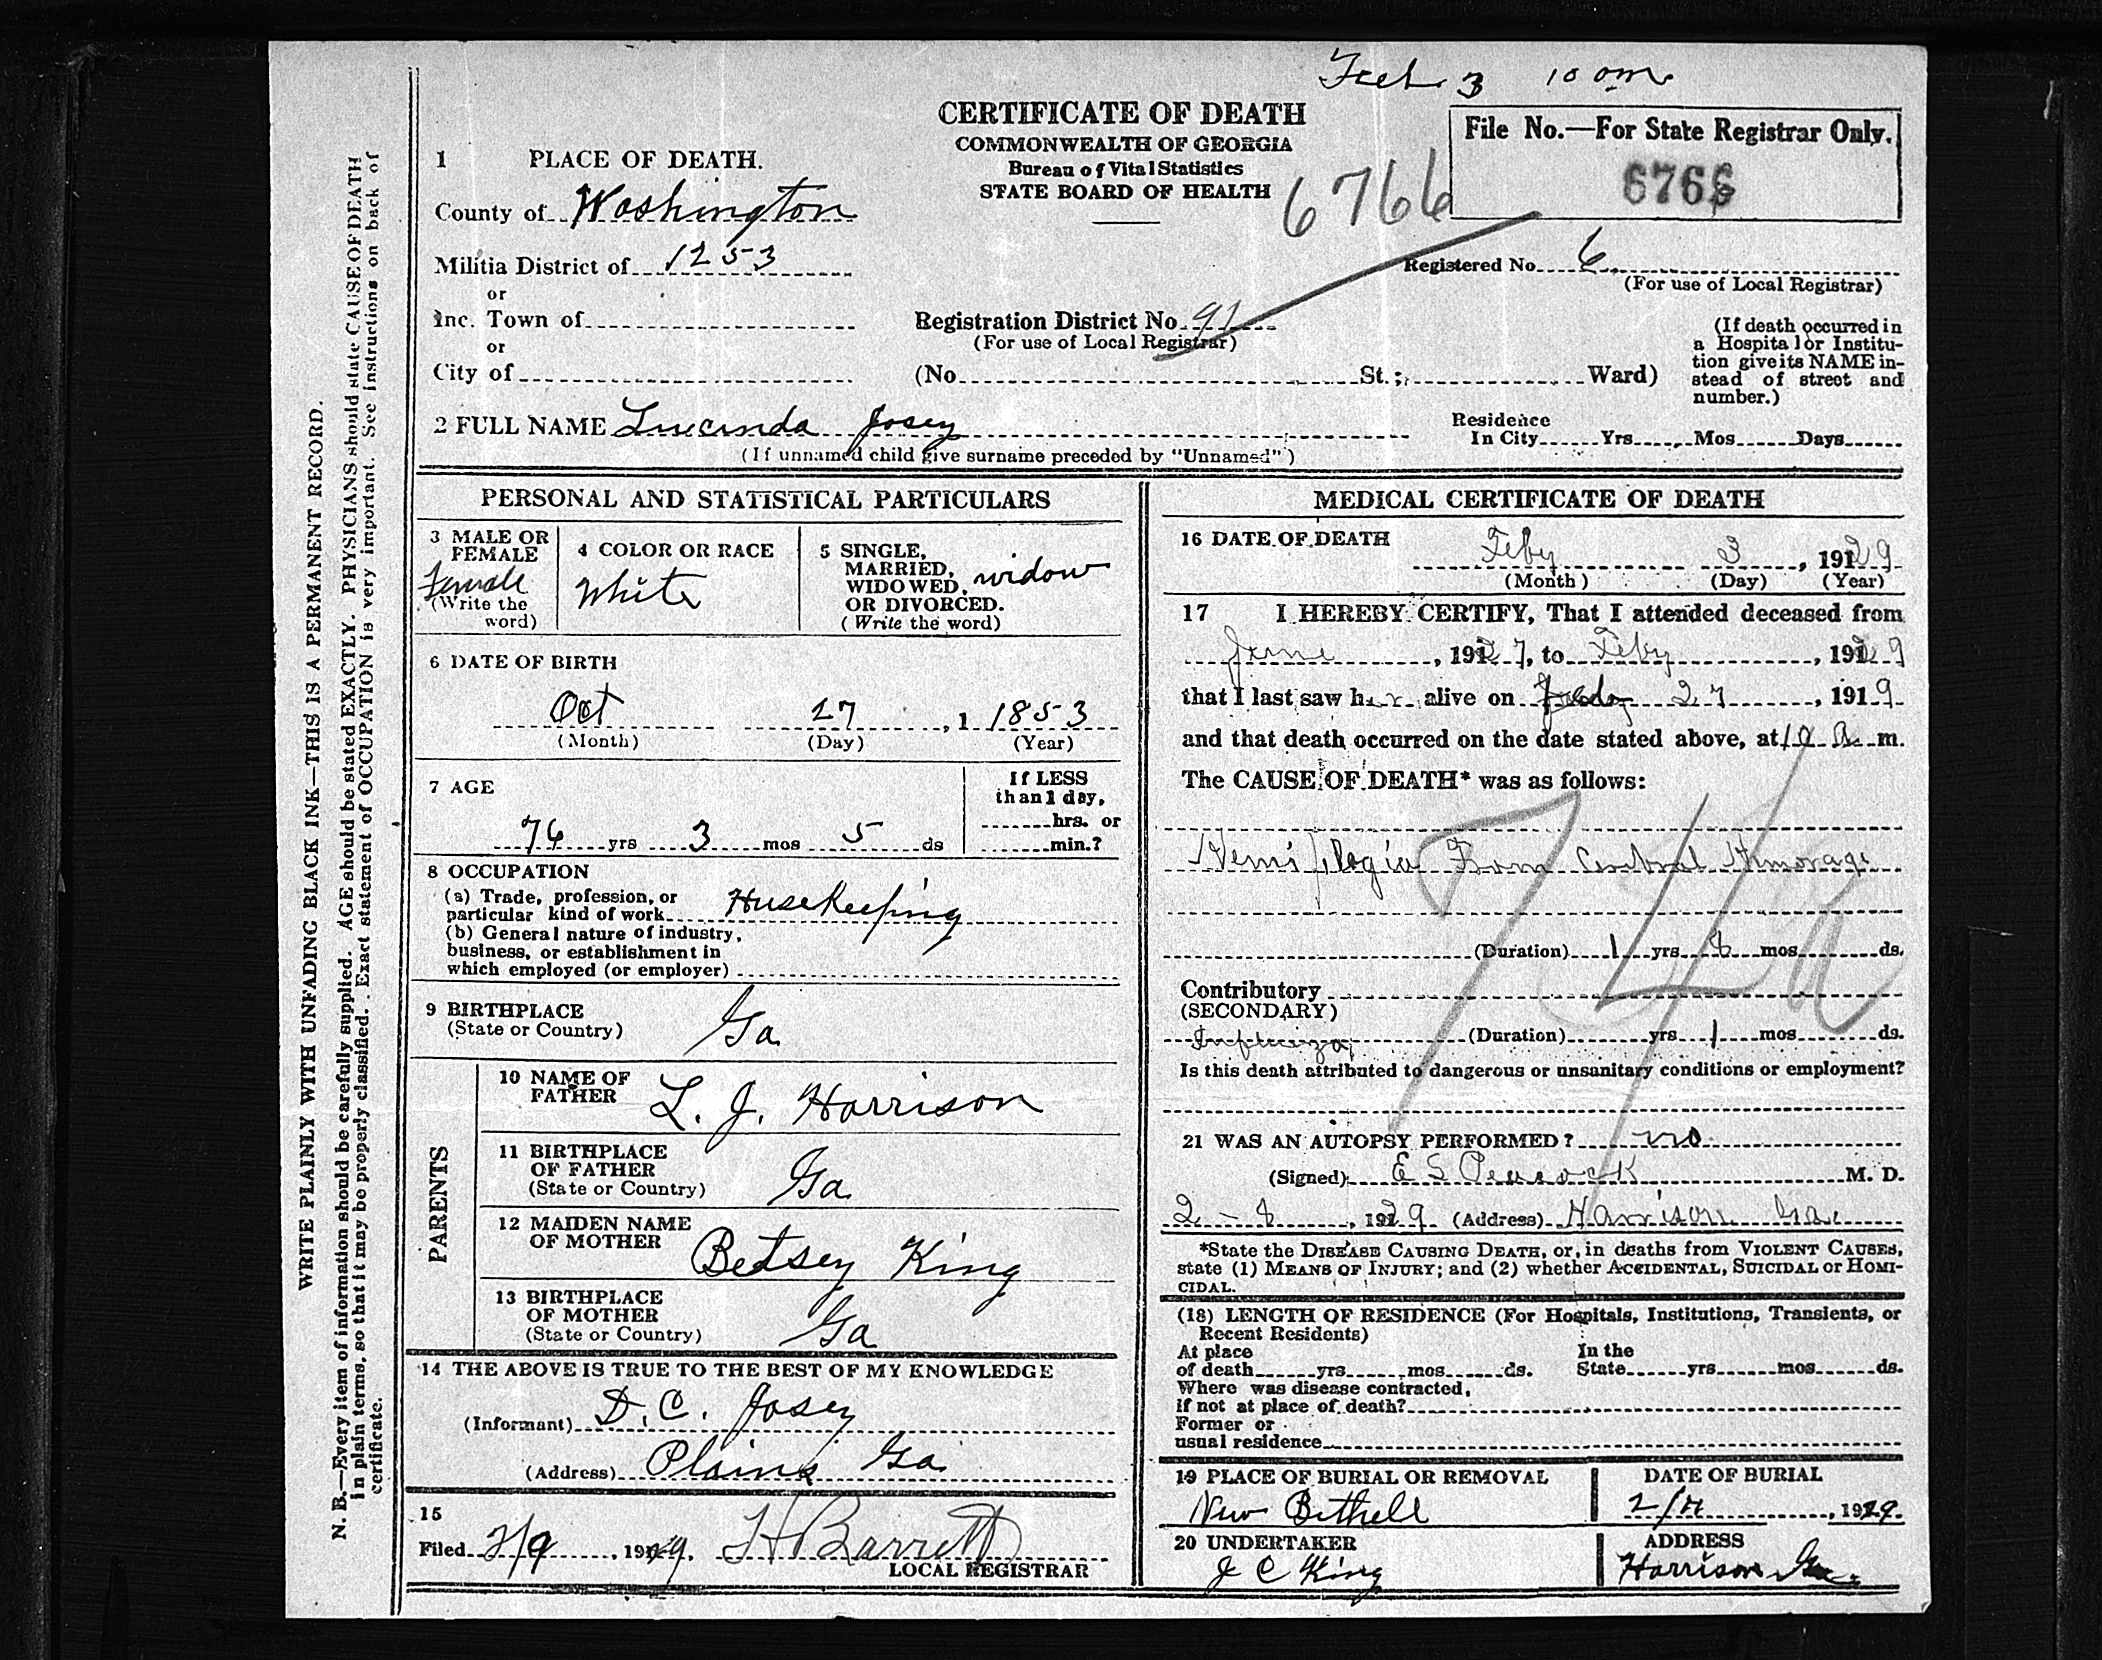 Feb 3 10 am
CERTIFICATE OF DEATH
COMMONWEALTH OF GEORGIA
Bureau of Vital Statistics
STATE BOARD OF HEALTH
File No.—For State Registrar Only.
6766
6766
1 PLACE OF DEATH.
County of Washington
Militia District of 1253
Registered No. 6
(For use of Local Registrar)
or
Inc. Town of
Registration District No. 91
(For use of Local Registrar)
or
City of
(No. St.; Ward)
(If death occurred in
a Hospital or Institu-
tion give its NAME in-
stead of street and
number.)
2 FULL NAME Lucinda Josey
Residence
In City Yrs. Mos. Days
(If unnamed child give surname preceded by "Unnamed")
PERSONAL AND STATISTICAL PARTICULARS
3 MALE OR
FEMALE
Female
(Write the
word)
4 COLOR OR RACE
White
5 SINGLE,
MARRIED,
WIDOWED,
OR DIVORCED.
(Write the word)
widow
6 DATE OF BIRTH
Oct 27, 1 1853
(Month) (Day) (Year)
7 AGE
76 yrs 3 mos 5 ds
If LESS
than 1 day,
hrs. or
min.?
8 OCCUPATION
(a) Trade, profession, or
particular kind of work Husekeeping
(b) General nature of industry,
business, or establishment in
which employed (or employer)
9 BIRTHPLACE
(State or Country)
Ga
PARENTS
10 NAME OF
FATHER
L. J. Harrison
11 BIRTHPLACE
OF FATHER
(State or Country)
Ga
12 MAIDEN NAME
OF MOTHER
Betsey King
13 BIRTHPLACE
OF MOTHER
(State or Country)
Ga
14 THE ABOVE IS TRUE TO THE BEST OF MY KNOWLEDGE
(Informant) D. C. Josey
(Address) Plains Ga
15
Filed 2/9, 1929, H Barrett
LOCAL REGISTRAR
MEDICAL CERTIFICATE OF DEATH
16 DATE OF DEATH
Feby 3, 1929
(Month) (Day) (Year)
17 I HEREBY CERTIFY, That I attended deceased from
June, 1927, to Feby, 1929
that I last saw her alive on 27, 1919
and that death occurred on the date stated above, at 10 A. m.
The CAUSE OF DEATH* was as follows:
Hemiplegia From Cerebral Hmorage
74a
(Duration) 1 yrs 8 mos ds.
Contributory
(SECONDARY)
Influenza (Duration) yrs 1 mos ds.
Is this death attributed to dangerous or unsanitary conditions or employment?
21 WAS AN AUTOPSY PERFORMED? no
(Signed) E S Peacock M. D.
2-8, 1929 (Address) Harrison Ga.
*State the DISEASE CAUSING DEATH, or, in deaths from VIOLENT CAUSES,
state (1) MEANS OF INJURY; and (2) whether ACCIDENTAL, SUICIDAL or HOMI-
CIDAL.
(18) LENGTH OF RESIDENCE (For Hospitals, Institutions, Transients, or
Recent Residents)
At place In the
of death yrs mos ds. State yrs mos ds.
Where was disease contracted,
if not at place of death?
Former or
usual residence
19 PLACE OF BURIAL OR REMOVAL
New Bethell
DATE OF BURIAL
2/4, 1929.
20 UNDERTAKER
J C King
ADDRESS
Harrison Ga.
WRITE PLAINLY WITH UNFADING BLACK INK—THIS IS A PERMANENT RECORD.
N. B.—Every item of information should be carefully supplied. AGE should be stated EXACTLY. PHYSICIANS should state CAUSE OF DEATH
in plain terms, so that it may be properly classified. Exact statement of OCCUPATION is very important. See instructions on back of
certificate.